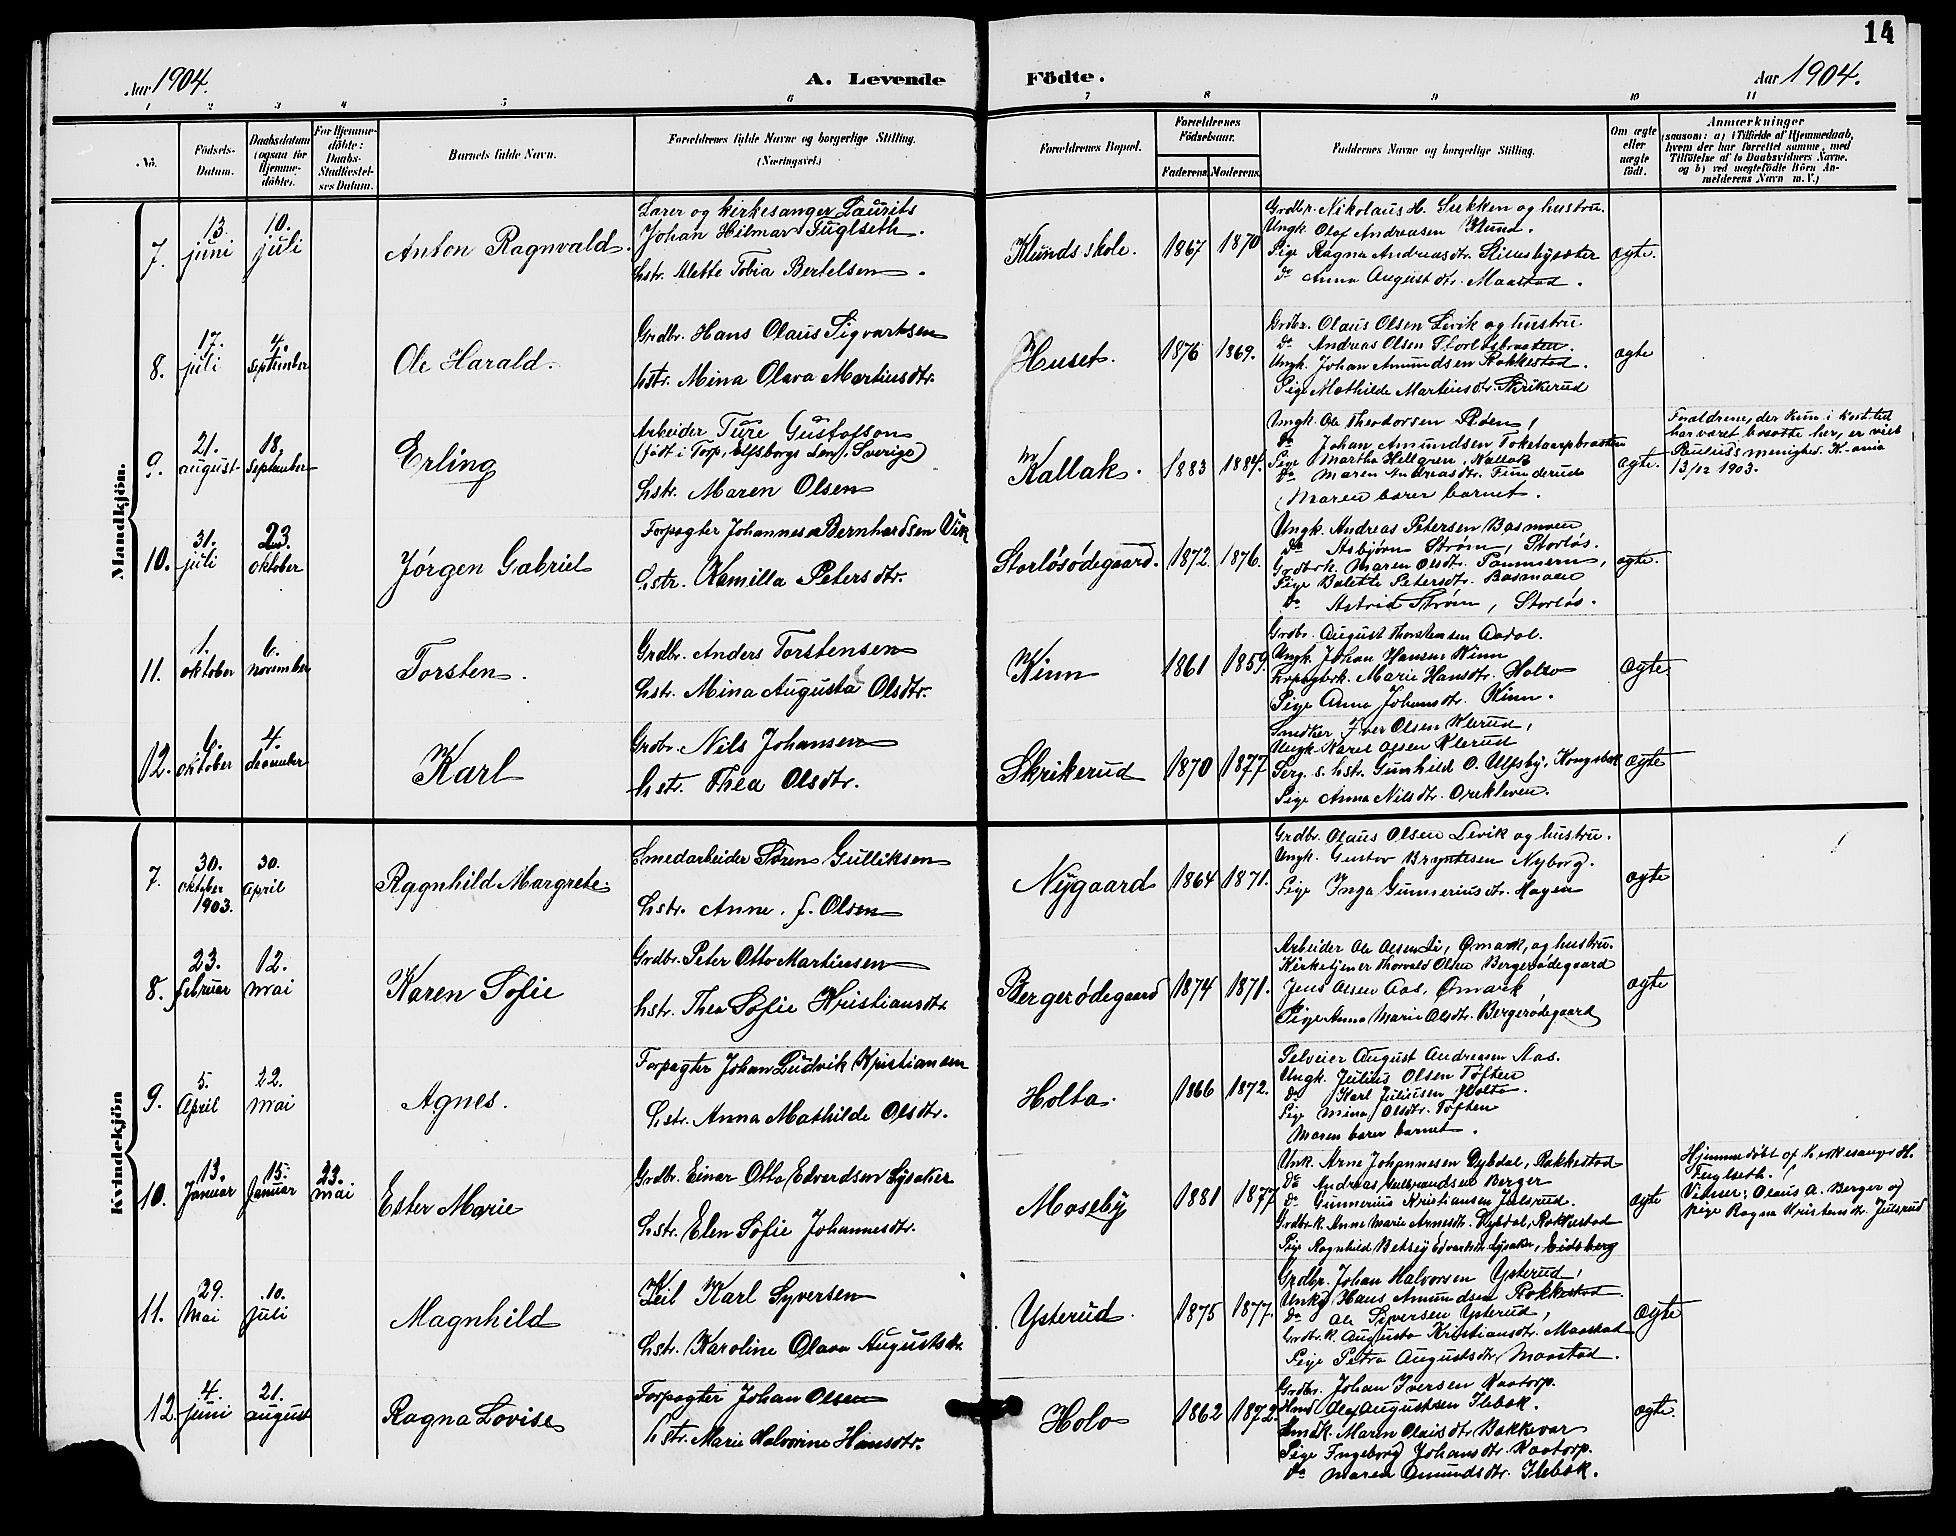 14
Aar 1904.
A. Levende Födte.
Aar 1904.
1 2 3 4 5 6 7 8 9 10 11
No.
Födsels-Datum.
Daabsdatum (ogsaa for Hjemme-döbte).
For Hjemme-döbte: Daabs-Stadfæstel-ses Datum.
Barnets fulde Navn.
Forældrenes fulde Navne og borgerlige Stilling. (Næringsvei.)
Forældrenes Bopæl.
Forældrenes Födselsaar.
Faderens. Moderens.
Faddernes Navne og borgerlige Stilling.
Om ægte eller uægte födt.
Anmærkninger
(saasom: a) i Tilfælde af Hjemmedaab,
hvem der har forrettet samme, med
Tilföielse af to Daabsvidners Navne,
og b) ved uægtefödte Börn An-
melderens Navn m. V.)
Mandkjön.
7. 13. juni 10. juli
Anton Ragnvald.
Lærer og kirkesanger Laurits
Johan Hilmar Fuglseth.
hstr. Mette Tobia Bertelsen.
Klunds skole. 1867 1870
Grdbr. Nikolaus H. Sukken og hustru.
Ungk. Olaf Andreasen Klund.
Pige Ragna Andreasdtr.
Do Anna Augustdtr. Maastad.
ægte.
8. 17. juli 4. september
Ole Harald.
Grdbr. Hans Olaus Sigvartsen
hstr. Mina Olava Martinsdtr.
Huset. 1876 1869.
Grdbr. Olaus Olsen Levik og hustru.
Do Andreas Olsen
Ungk. Johan Amundsen Rakkestad.
Pige Mathilde Martinsdtr. Skrikerud
ægte
9. 21. august 18. september
Erling
Arbeider Ture Gustafson
(født i Torp, Elfsborgs len, Sverige)
hstr. Maren Olsen
Kallak. 1883 1884.
Ungk. Ole Theodorsen Røen,
Do Johan Amundsen
Pige Martha Hellgren, Kallak
Do Maren Andreasdtr. Funderud
(Maren bærer barnet.
ægte.
Forældrene, der kun i kort tid
har været bosatte her, er viet
Paulus's menighed. K-ania
13/12 1903.
10. 31. juli 23. oktober
Jørgen Gabriel
Forpagter Johannes Bernhardsen Vik
hstr. Kamilla Petersdtr.
Storløsødegaard. 1872. 1876.
Ungk. Andreas Petersen Basmoen
Do Asbjørn Strøm, Storløs.
Grdbrk. Maren Olsdtr.
Pige Balette Petersdtr. Basmoen
Do Astrid Strøm, Storløs.
ægte.
11. 1. oktober 6. november
Torsten.
Grdbr. Anders Torstensen
hstr. Mina Augusta Olsdtr.
Kinn 1861 1859.
Grdbr. August Thorstensen Aadal.
Ungk. Johan Hansen Kinn
Forpagterk. Marie Hansdtr. Holso
Pige Anna Johansdtr. Kinn.
ægte.
12. 6. oktober 4. december
Karl
Grdbr. Nils Johansen
hstr. Thea Olsdtr.
Skrikerud 1870 1877
Smedker Iver Olsen Klerud,
Ungk. Karel Olsen Klerud
Serg. s. hstr. Gunhild O. Ulfsby, Kongsbek
Pige Anna Nilsdtr. Orekleven.
ægte
Kvindekjön
7. 30. oktober 1903. 30. April
Ragnhild Margrete.
Smedarbeider Søren Gulliksen
hstr. Anne. f. Olsen
Nygaard 1864 1871.
Grdbr. Olaus Olsen Levik og hustru.
Ungk. Gustav Bryntesen Nyborg.
Pige Inga Gunneriusdtr. Hagen
ægte
8. 23. februar 12. mai
Karen Sofie
Grdbr. Peter Otto Martinsen
hstr. Thea Sofie Kristiansdtr.
Bergerødegaard 1874 1871.
Arbeider Ole Olsen Li, Ømark, og hustru.
Kirketjener Thorvald Olsen Bergerødegaard
Jens Olsen Aas, Ømark
Pige Anna Marie Olsdtr. Bergerødegaard
ægte
9. 5. April 22. mai
Agnes.
Forpagter Johan Ludvik Kristiansen
hstr. Anna Mathilde Olsdtr.
Holta. 1866 1872.
Selveier August Andreasen Aas.
Ungk. Julius Olsen Toften
Do Karl Juliusen Holta.
Pige Mina Olsdtr. Toften
Maren bærer barnet.
10. 13. Januar 15. Januar 23. mai
Ester Marie
Grdbr. Einar Otto Edvardsen Lysaker
hstr. Elen Sofie Johannesdtr.
Moseby 1881 1877
Unk. Arne Johannesen Dybdal, Rakkestad
Do Andreas Berger
Do Gunnerius Kristiansen Julsrud.
Grdbrk. Anne Marie Arnesdtr. Dybdal, Rakkestad
Pige Ragnhild Betsey Edvardsdtr. Lysaker, Eidsberg
ægte
Hjemmedøbt af kirkesanger H.
Fuglseth.
Vidner: Olaus A. Berger og
pige Ragna Kristiansdtr. Julsrud
11. 29. Mai 10. juli
Magnhild
Karl Syversen
hstr. Karoline Olava Augustsdtr.
Ysterud. 1875 1877.
Grdbr. Johan Halvorsen Ysterud,
Ungk. Hans Amundsen Rakkestad
Do Ole Syversen Ysterud,
Grdbr.k. Augusta Kristiansdtr. Maastad
Pige Petra Augustsdtr. Maastad.
ægte
12. 4. juni 21. august
Ragna Lovise
Forpagter Johan Olsen
hstr. Marie Halvorine Hansdtr.
Holo 1862 1872.
Grdbr. Johan Iversen Kaatorp.
Olaf Augustsen Ilebæk.
Maren Olaisdtr. Bakkevar
Pige Ingeborg Johansdtr. Kaatorp.
Do Maren Amundsdtr. Ilebæk.
ægte.